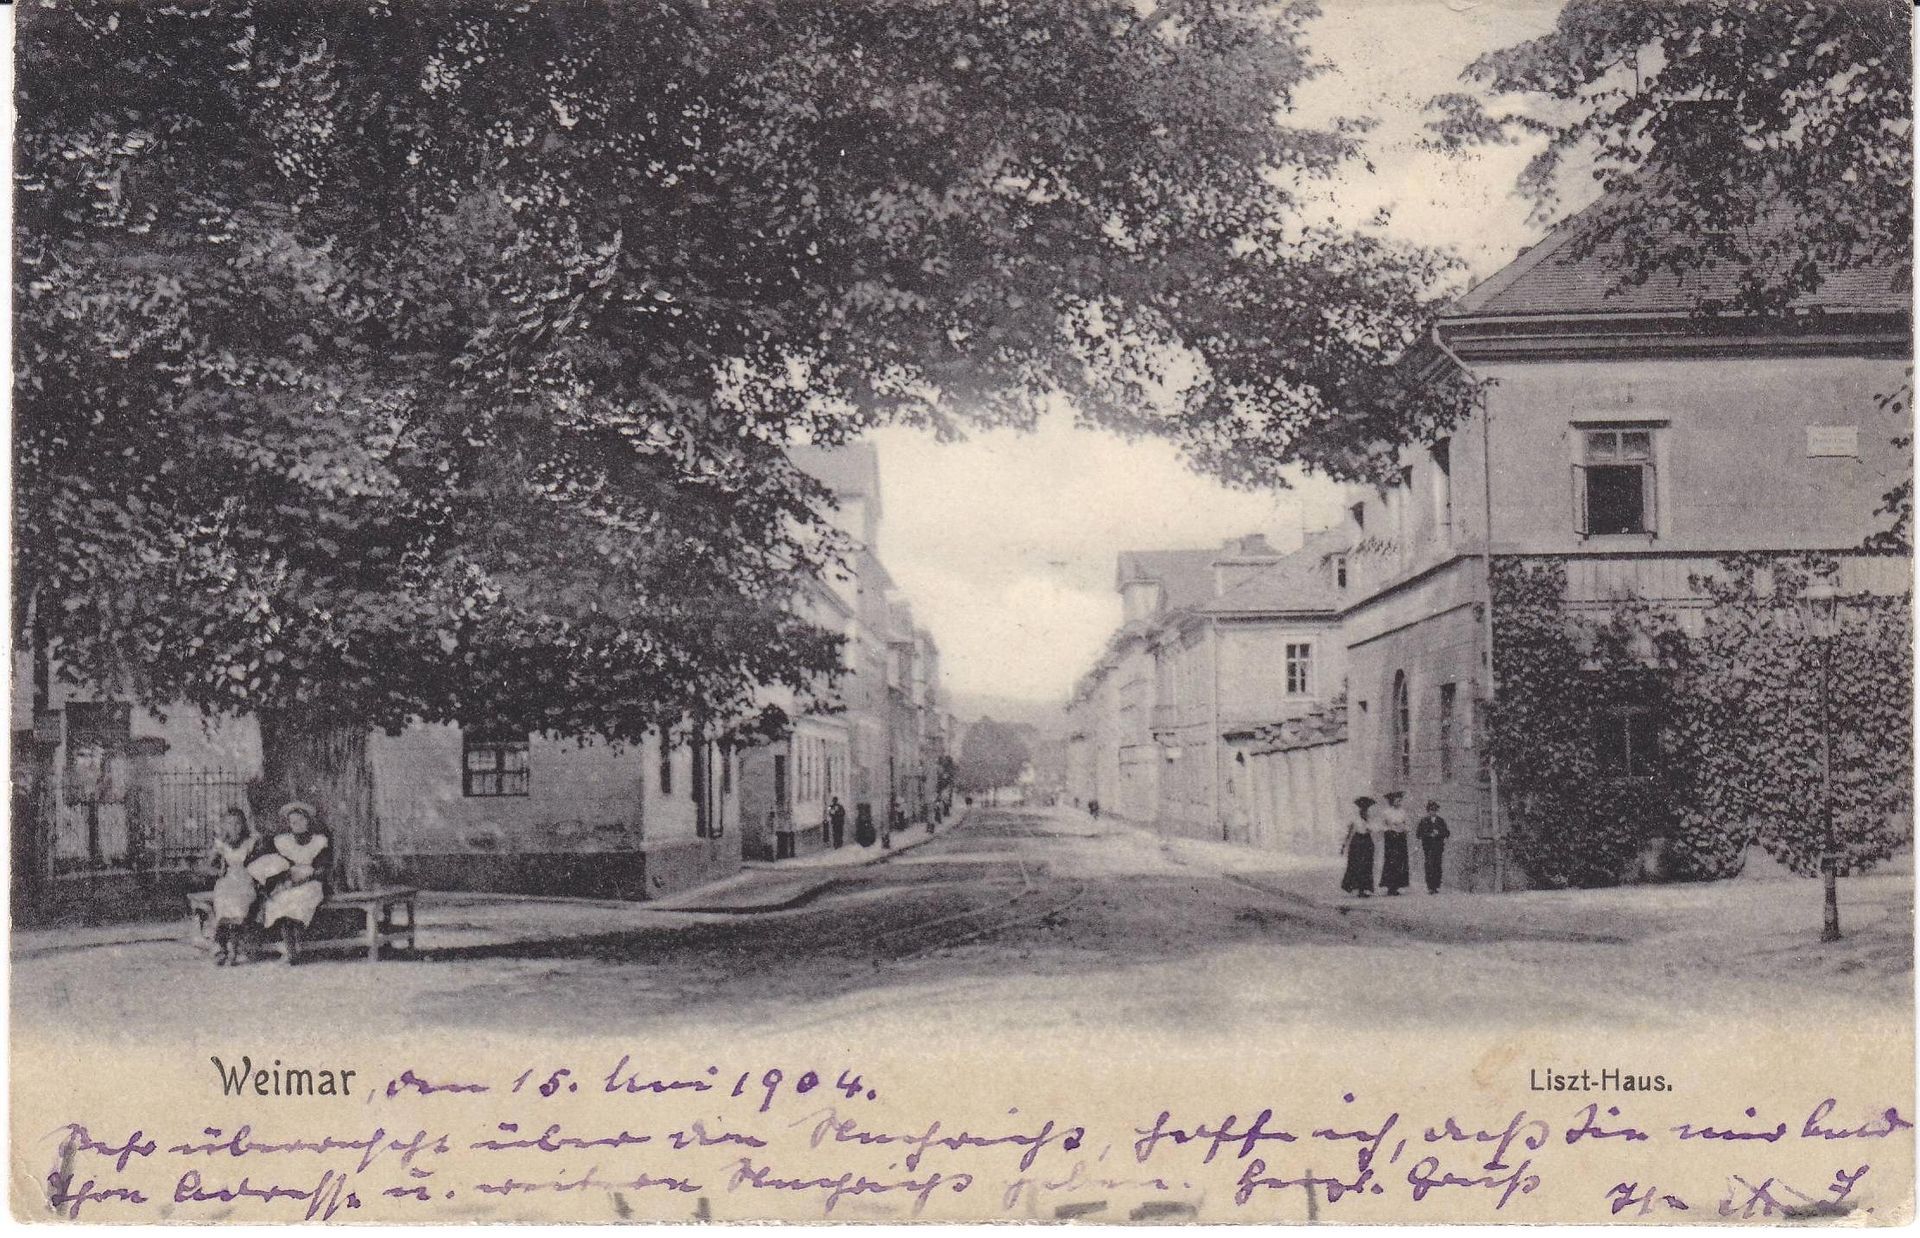 Weimar, den 15. Mai 1904.
Liszt-Haus.
Sehr überrascht über die Nachricht, hoffe ich, daß Sie mir bald
Ihre Adresse u. weitere Nachricht geben. Herzl. Gruß Ihr